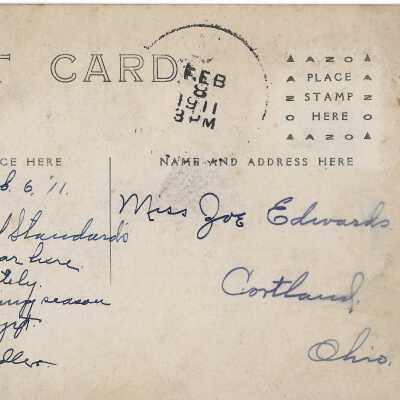 T CARD
FEB
8
1911
3 PM
AZO
PLACE
STAMP
HERE
AZO
CE HERE
NAME AND ADDRESS HERE
b. 6, '11.
Standards
ar here
tely.
season
Miss Zoe Edwards
Cortland,
Ohio.